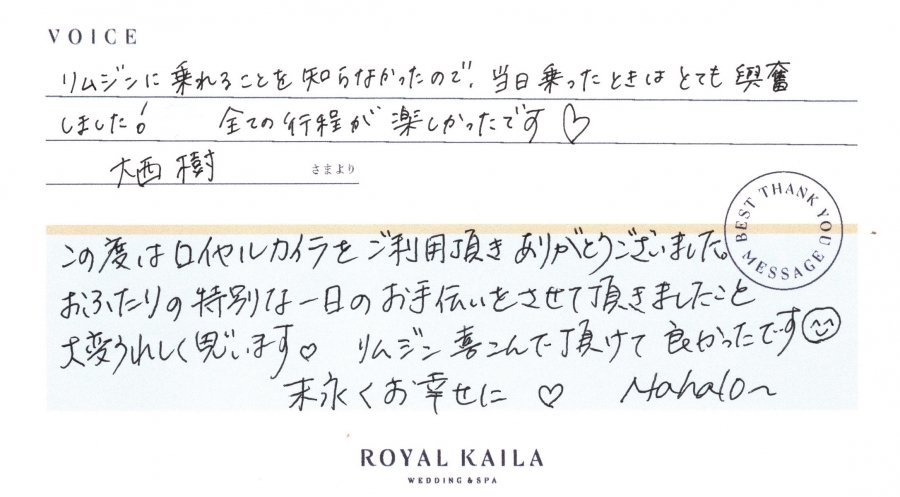 VOICE
リムジンに乗れることを知らなかったので、当日乗ったときはとても興奮
しました! 全ての行程が楽しかったです♡
大西 樹 さまより
BEST THANK YOU MESSAGE
この度はロイヤルカイラをご利用頂きありがとうございました。
おふたりの特別な一日のお手伝いをさせて頂きましたこと
大変うれしく思います♡ リムジン喜こんで頂けて良かったです😊
末永くお幸せに ♡ Mahalo~
ROYAL KAILA
WEDDING & SPA